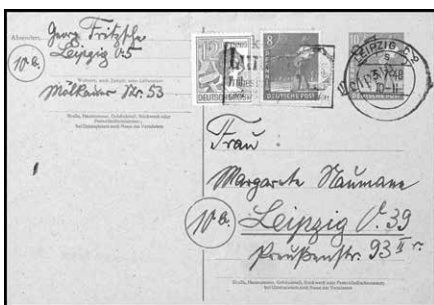 Absender:
Georg Fritzsche
Leipzig O5
10b
Wohnort, auch Zustell- oder Leitpostamt
Mölkauer Str. 53
Straße, Hausnummer, Gebäudeteil, Stockwerk oder
Postschließfachnummer;
bei Untermietern auch Name des Vermieters
12
DEUTSCHE POST
8
DEUTSCHE POST
10
LEIPZIG C2
s
3.7.48
10-11
Frau
Margarete Naumann
10b. Leipzig O.39
Preußenstr. 93 II r.
Straße, Hausnummer, Gebäudeteil, Stockwerk oder Postschließfachnummer;
bei Untermietern auch Name des Vermieters